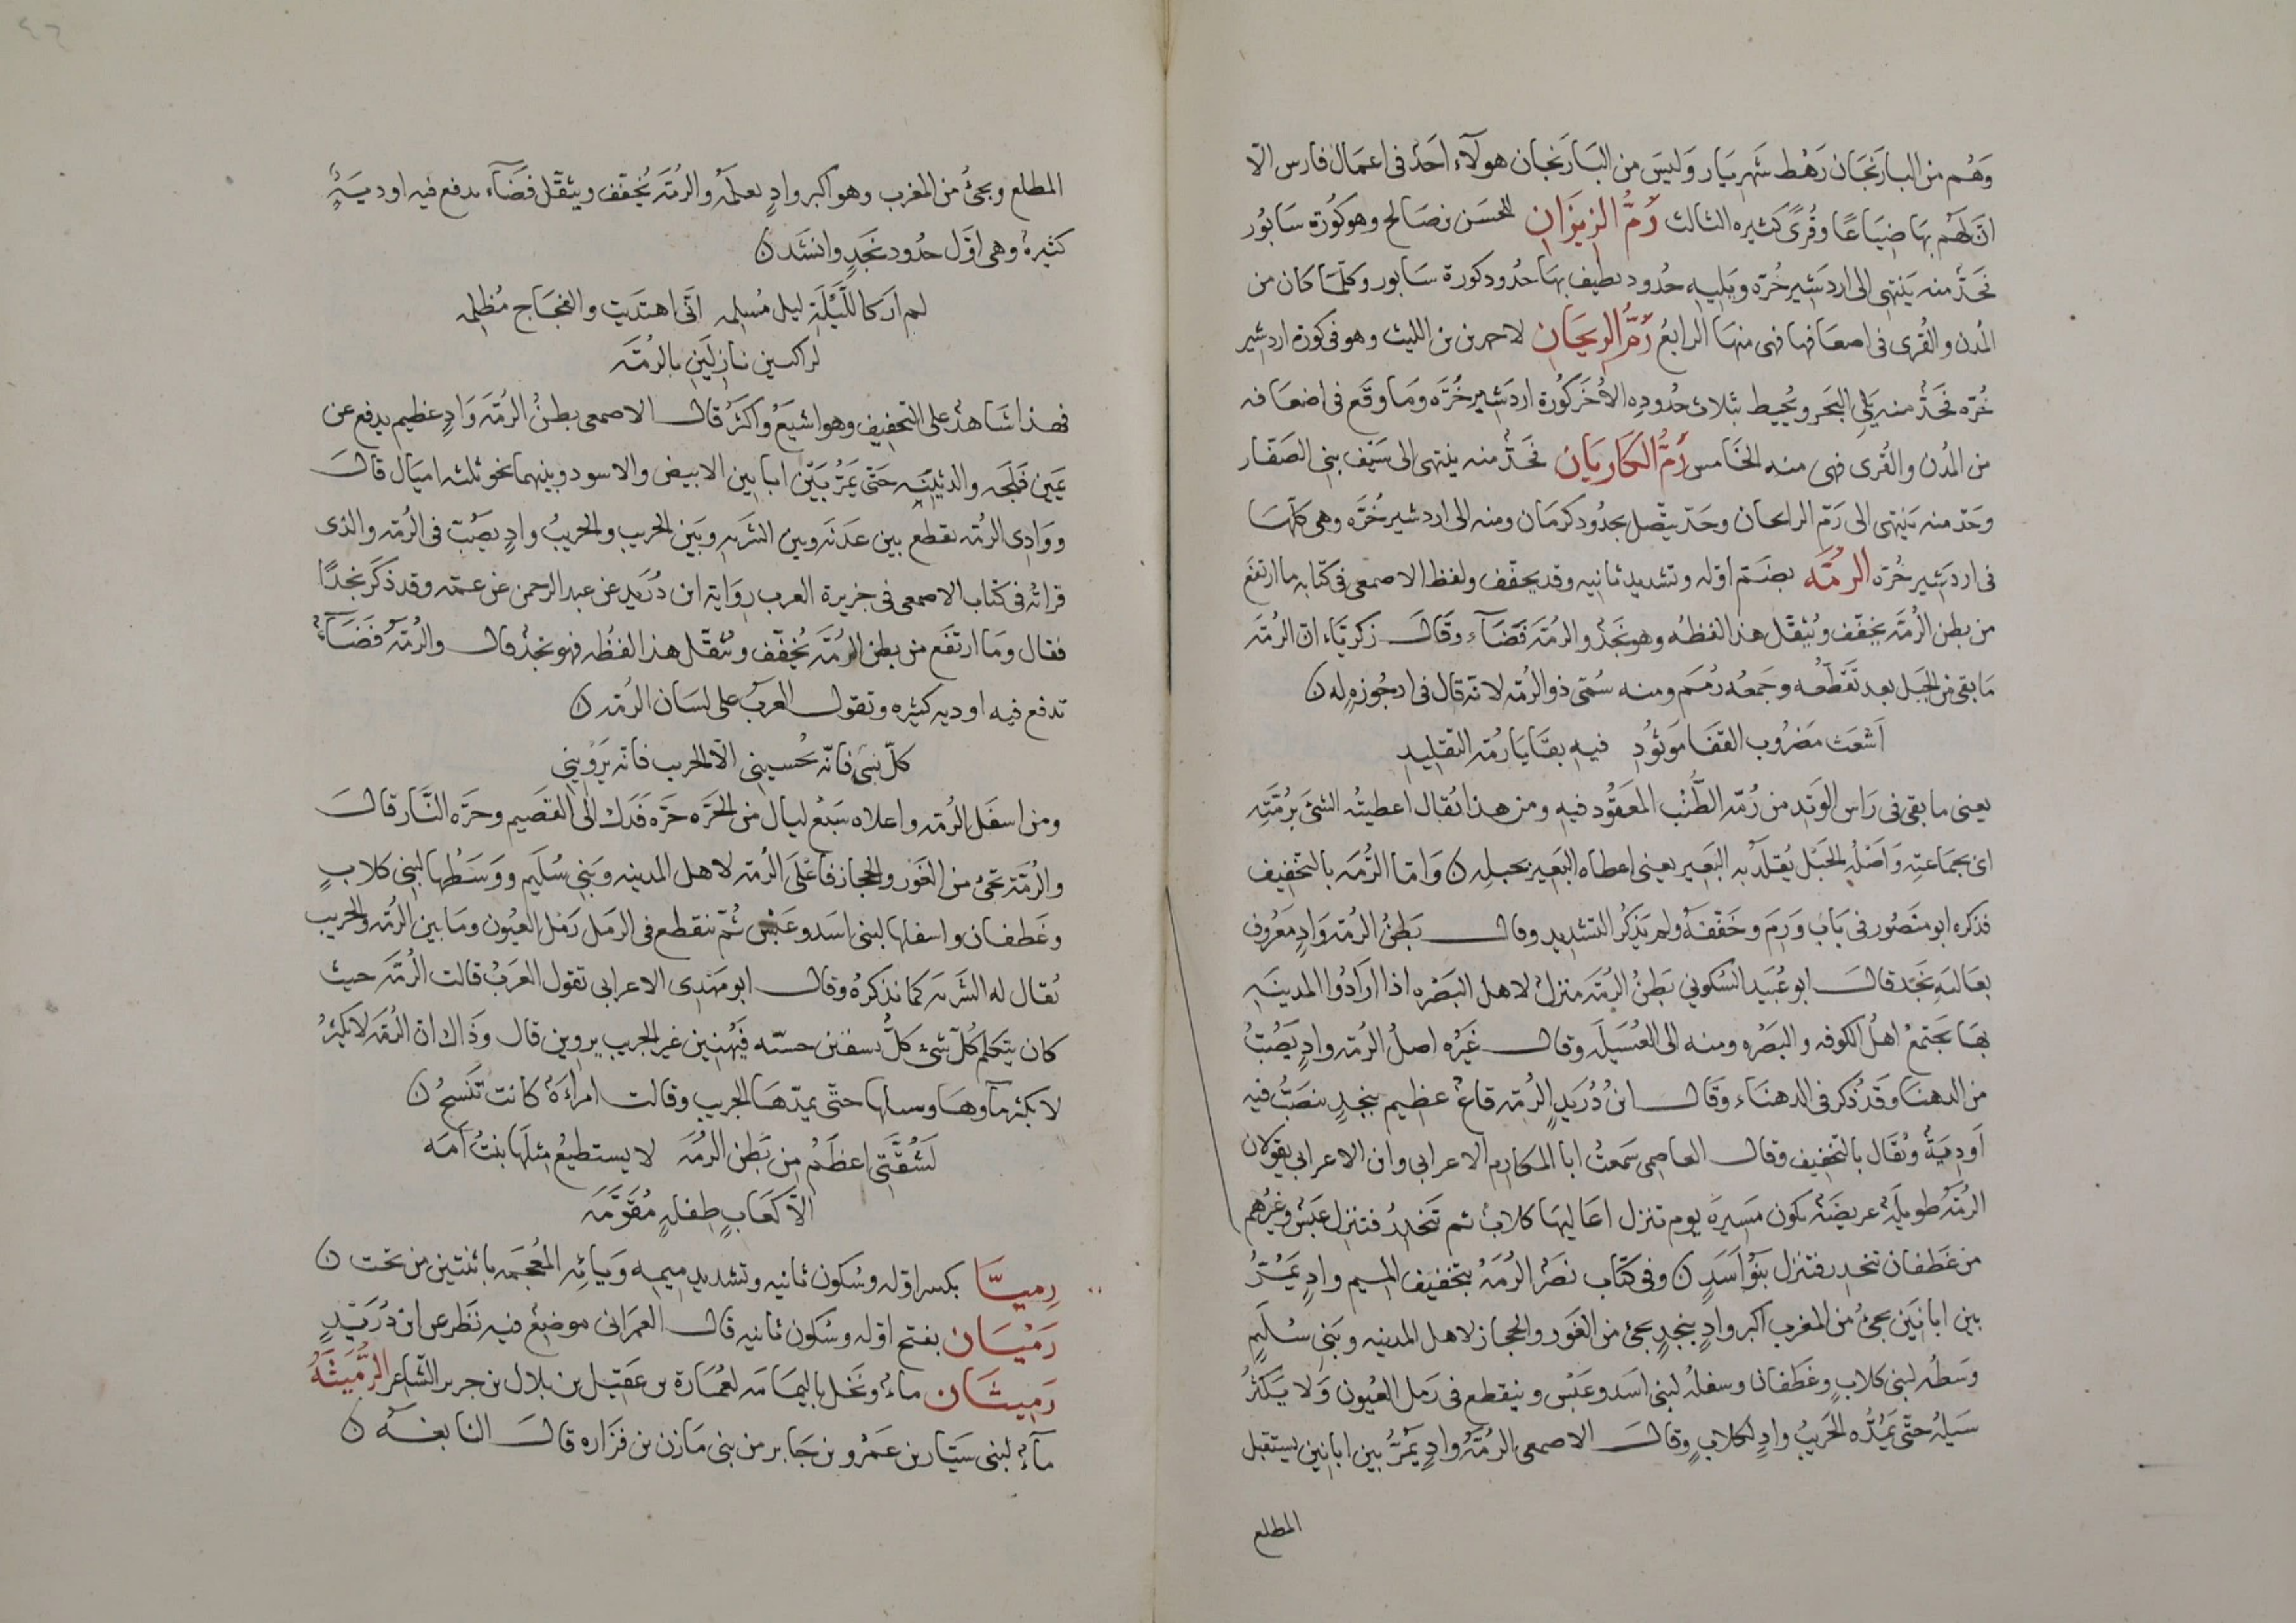 وَهُم من البارَنجَان رَهْط شَهريَار وَليسَ من البَارَنجان هولَاء احَدْ فى اعمَال فارس الّا
انّ لَهُم بهَا ضيَاعًا وقُرًى كثيره الثالث رَمُّ الزيزَان للحسَن بن صَالح وهو كُورة سَابُور
فحَدّ منه يَنتهى الى اردشير خُرّه ويَليه حدُود تطيف بهَا حدُود كورة سَابور وكلّمَا كان من
المُدن والقُرى فى اضعَافها فهى منهَا الرابعُ رَمُّ الريحَان لاحمد بن الليث وهو فى كورة اردشير
خُرّه فحَدّ منه يَلى البحَر ويُحيط بثلاث حدُودِه الأُخَر كُورة اردَشير خُرَّه وَمَا وقَع فى اضعَافه
من المُدن والقُرى فهى منه الخَامس رَمُّ الكاريَان فحَدّ منه ينتهى الى سَيف بنى الصَفّار
وحَدّ منه يَنتهى الى رَمّ الرايحان وحَدّ يتّصل بحدُود كرمَان ومنه الى اردشير خُرَّه وهى كلّهَا
فى اردشير خُرّه الرمَّه بضَم اوّله وتشديد ثانيه وقد يخفّف ولفظ الاصمعى فى كتابه ما ارتفَع
من بطن الرُمّة يخفّف ويُثقّل هذا لفظهُ وهو نجَدْ والرُمّة فَضَاء وقَالَ زكريّاء انّ الرُمّة
مَا بقى من الحبَل بعد تقَطّعه وجَمعُه رُمَم ومنه سُمّى ذو الرُمّه لانّه قال فى ارجُوزهٍ له ن
اَشعَث مَضرُوب القفَا مَوتُودِ فيهِ بقَايَا رُمّه التقليدِ
يعنى ما بقى فى رَاس الوَتد من رُمّه الطُنُب المعَقُود فيهِ ومن هذا يُقال اعطيتُه الشئَ برُمّتِه
اى بجمَاعتِه وَاَصْلُه الحَبْل يُقلَّد به البَعَير يعنى اعطاه البَعَير بحبلِه ن وَامّا الرُمَه بالتخفيف
فذكره ابو منصُور فى بَاب وَرَم وخَفّفهُ ولم يَذكُر التشديد وقالــ بَطنُ الرُمّه وَادٍ معَرُوف
بعَالية نجَد قالــ ابو عُبَيد السَكُونى بَطنُ الرُمّه منزلْ لاهل البَصْره اذا ارَادُوا المدينَه
بهَا يَجَتمعُ اهلُ الكوفه والبَصْره ومنه الى العُسَيلَه وقالــ غَيْرُه اصلُ الرُمّه وادٍ يَصُبّ
من الدهنا وقَد ذُكر فى الدهنَاء وقَالــ ابنُ دُرَيدٍ الرُمّه قاعْ عظيم بنجدٍ ينصَبُّ فيه
اَودِيَة ويُقال بالتخفيف وقالــ العاصمى سَمعتُ ابا المكارِم الاعرابى وابن الاعرابى يقولان
الرُمّهُ طويلَة عريضَة تكون مَسيرَة يوم تنزل اعَاليهَا كلابْ ثم تنحَدرُ فتنزل عبَسْ وغَيرُهم
من غَطَفان تنحدر فتنزل بنُوْ اَسَدٍ ن وفى كتَاب نصْر الرُمَهُ بتخفيف الميم وادٍ يَمُرُّ
بين ابانَين يجىُ من المغرب اكبر وادٍ بنجدٍ يجئ من الغَور والحجاز لاهل المدينه وبَنى سُليمٍ
وَسَطُه لبنى كلابٍ وغَطَفان وسفلُه لبنى اسَد وعَبَسْ وينقطع فى رَمل العيُون وَلا يَكثُر
سَيلُه حتّى يَمُدّه الحَريبُ وادٍ لكلابٍ وقالــ الاصمعى الرُمّهُ وادٍ يَمُرُّ بين ابانين يستقبل
المطلع
المطلع ويجئُ من المغرب وهو اكبر وادٍ يعلَمُه والرُمّة يُخفّف ويثقّل فضَاء يدفع فيه اوديَةْ
كثيرة وهى اوّل حدُود نجَدٍ وانشَد ن
لم ار كاللّيْلَةِ ليل مُسلمه انّى اهتدَيت والفجَاج مُظلمه
لراكبين نازلَين بالرُمَه
فهذا شاهدْ على التخفيف وهو اشيَعُ واكثَرُ قالــ الاصمعى بطنُ الرُمّه وَادٍ عظيم يدفع عن
يمَين فَلَجه والدثينه حَتّى يَمُرّ بَيْن ابا بين الابيض والاسود وبينهما نحو ثلثه اميَال قالــ
ووَادِى الرُمّه يقطع بين عدَنَه وبين الشَربه وبَين الحريب والحريبُ وادٍ يصُبّ فى الرُمّه والذى
قراتُه فى كتاب الاصمعى فى جزيرة العرب روَاية ابن دُرَيدٍ عن عبد الرحمن عن عمّه وقد ذكَر نجَدًا
فقال ومَا ارتفَع من بطن الرُمّه يُخفّف ويُثقّل هذا لفظُه فهو نجدْ قالــ والرُمّهُ فَضَاءْ
تدفع فيه اوديه كثيره وتقولــ العربُ على لسَان الرُمّه ن
كلّ بَنىّ فانّه يُحسينى الّا الجريب فانّه يَرْوينى
ومن اسفَل الرُمّه واعلاه سَبَع ليال من الحَرّه حَرّه فدَك الى القصَيم وحرّه النَّار قالــ
والرُمّة تجئ من الغَوْر والحجاز فاعْلَى الرُمّه لاهل المدينه وبَنى سُلَيم ووَسَطُها لبنى كلابٍ
وغَطَفان واسفلها لبنى اسَد وعَبْس ثُمّ تنقطع فى الرَمل رَمْل العيُون ومَا بين الرُمّه والحريب
يُقال له الشَربّه كما نذكرهُ وقالــ ابو مَهْدى الاعرابى تقول العَرَبُ قالت الرُمّه حيث
كان يتكلم كُلّ شئ كلُّ حسّه غير الجريب يروين قال وذَاك انّ الرُمّه لا يكثرُ
لا يكثر مآوهَا وسيلها حتّى يمدّهَا الجريب وقالت امراءَة كانت تَنسجُ ن
لَشُقّتى اعظَمُ من بَطن الرُمّه لا يستطيعُ مثلَها بنتُ اَمَه
الّا كعَابٍ طِفلهٍ مُقوَّمَه
رِميّا بكسر اوّله وسُكون ثانيه وتشديد ميمه وَيَائه المُعجَمَه باثنتين من تحت ن
رَمْيَان بفتح اوّله وسُكون ثانيه قالــ العمرَانى موضعْ فيه نَظَر عن ابن دُرَيدٍ
رَمِيثَان ماءْ ونخَل باليمَامَه لعُمَارة بن عَقيل بن بلال بن جرير الشاعر الرُّمَيثَةُ
مآءْ لبنى سَيّار بن عَمْرو بن جَابر من بنى مَازن بن فزَاره قالــ النابغَه ن